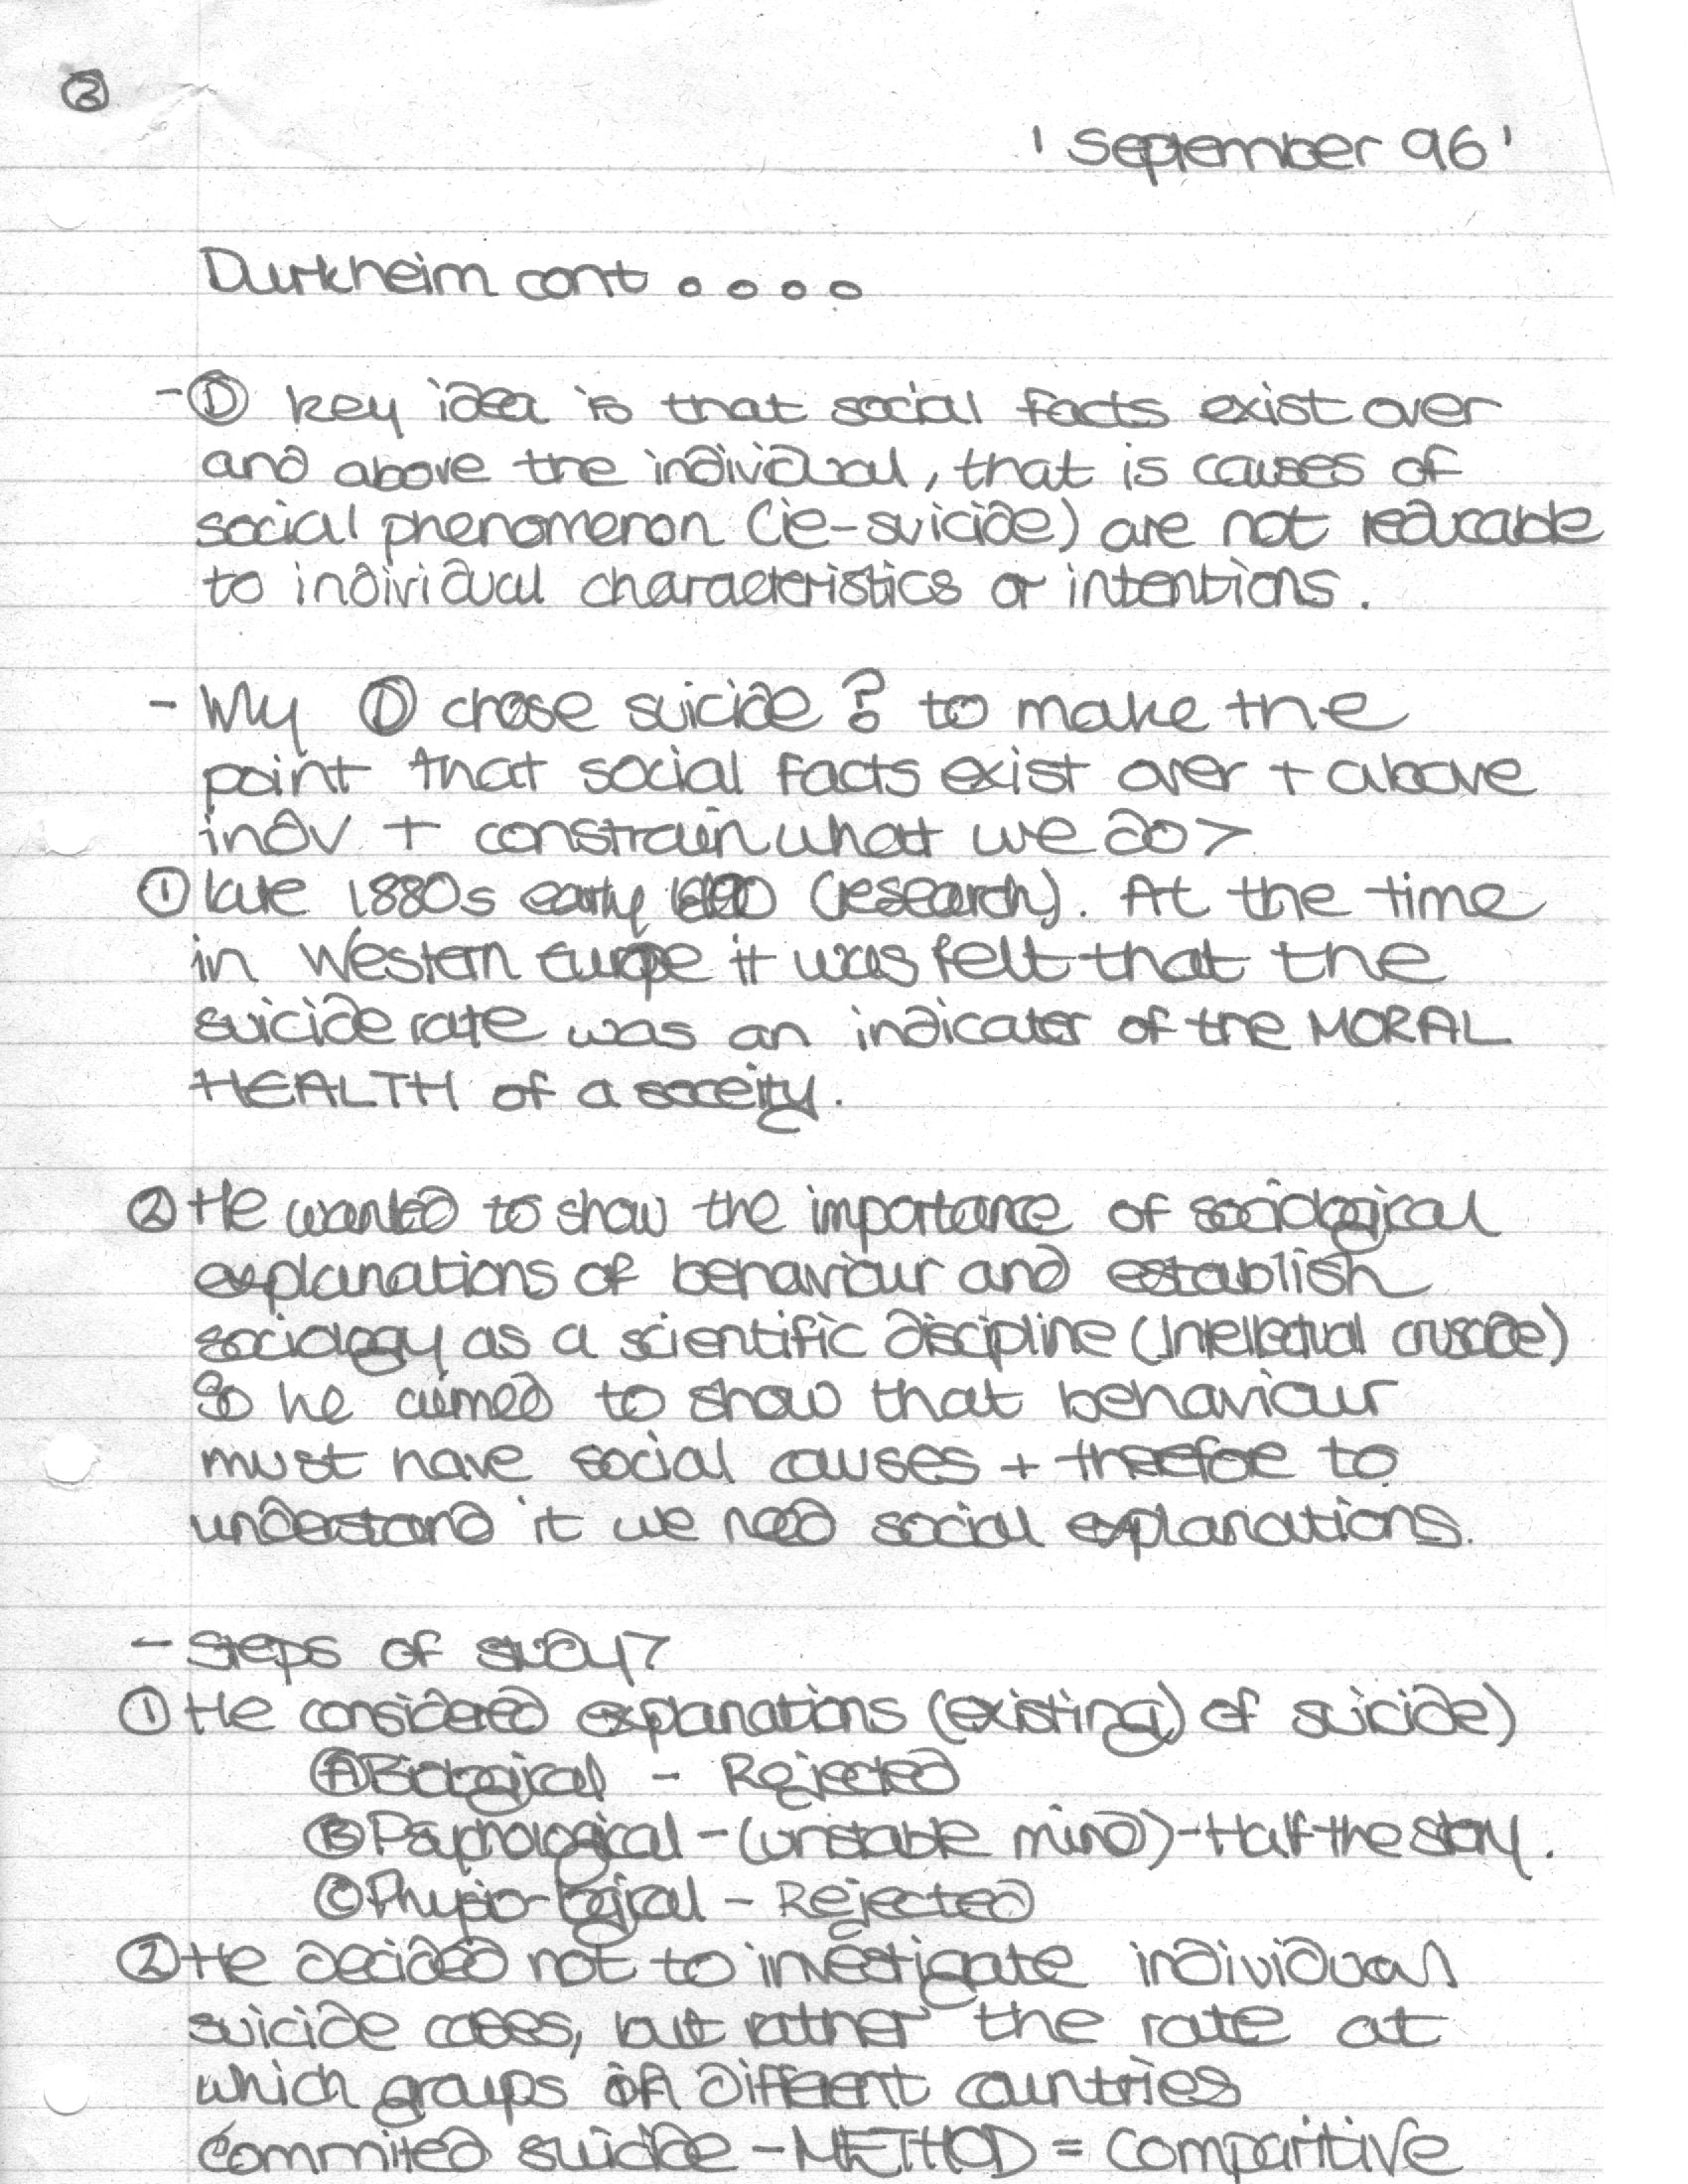 ②
' September 96 '
Durkheim cont ....
- Ⓓ key idea is that social facts exist over
and above the individual, that is causes of
social phenomenon (ie-suicide) are not reducable
to individual characteristics or intentions.
- Why Ⓓ chose suicide? to make the
point that social facts exist over + above
indv + constrain what we do>
① late 1880s early 1890 (research). At the time
in Western Europe it was felt that the
suicide rate was an indicater of the MORAL
HEALTH of a soceity.
② He wanted to show the importance of sociological
explanations of behaviour and establish
sociology as a scientific discipline (Intellectual crusade)
So he aimed to show that behaviour
must have social causes + therefoe to
understand it we need social explanations.
- Steps of study>
① He considered explanations (existing) of suicide)
Ⓐ Biological - Rejected
Ⓑ Psychological - (unstable mind) - Half the story.
Ⓒ Physio-logical - Rejected
② He decided not to investigate individual
suicide cases, but rather the rate at
which groups in different countries
commited suicide - METHOD = Comparitive